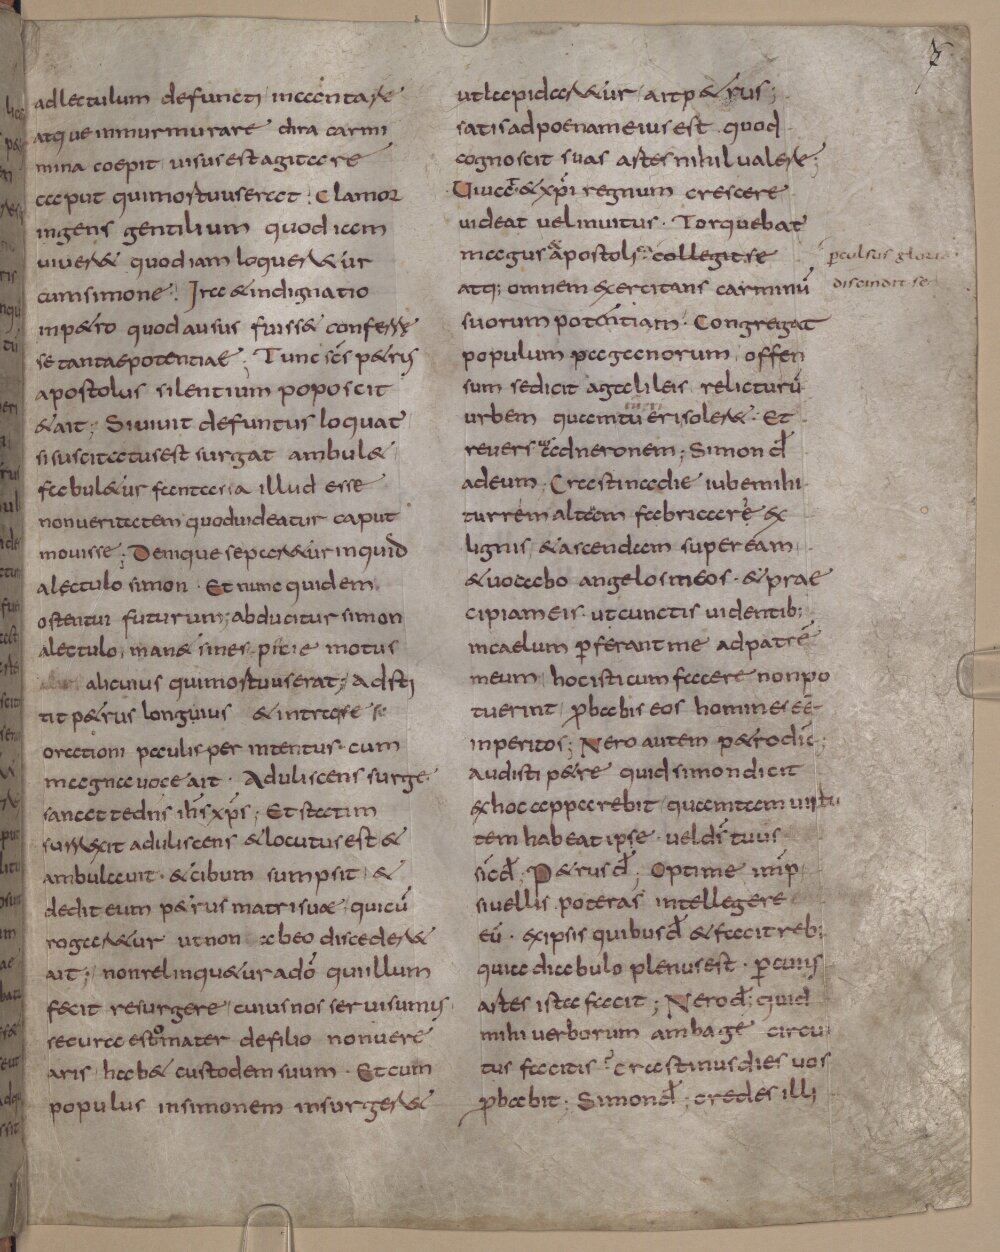 adlectulum defuncti incantare
atque inmurmurare dira carmi
mina coepit uisus est agitare
caput qui mortuus erat. Clamor
ingens gentilium quod iam
uiueret quod iam loqueretur
cum simone. Ira & indignatio
in p&ro quod ausus fuiss& conferre
se tantae potentiae; Tunc scs p&rus
apostolus silentium poposcit
& ait; Si uiuit defuntus loquat
si suscitatus est surgat ambul&
fabul&ur fantasia illud esse
non ueritatem quod uideatur caput
mouisse; Denique separetur inquid
a lectulo simon. Et nunc quidem
ostentui futurum; abducitur simon
a lectulo, man& sine specie motus
alicuius qui mortuus erat; Adsti
tit p&rus longuius & intra se
orationi paulisper intentus cum
magna uoce ait. Aduliscens surge
sanat te dns ihs xps; Et statim
surrexit aduliscens & locutus est &
ambulauit. & cibum sumpsit, &
dedit eum p&rus matri suae, qui cu
rogaretur ut non ab eo discederet
ait; non relinqu&ur ado qui illum
fecit resurgere, cuius nos seruisumus
secura esto mater de filio non uere
aris hab& custodem suum. Et cum
populus in simonem insurgeret
ut lapidaretur, ait p&rus;
satis ad poenam eius est quod
cognoscit suas artes nihil ualere;
Uiuat & xpi regnum crescere
uideat uel inuitus. Torquebat
magus apostoli collegit se
atq; omnem exercitans carminu
suorum potentiam. Congregat
populum paganorum, offen
sum se dicit a galileis relicturu
urbem quam tueri soleret. Et
reuersus ad neronem; Simon d
ad eum; Crastina die iube mihi
turrem altam fabricare ex
lignis, & ascendam super eam
& uocabo angelos meos. & prae
cipiam eis. ut cunctis uidentib;
in caelum perferant me ad patre
meum, hoc isti cum facere non po
tuerint, probabis eos homines ee
inperitos; Nero autem p&ro dic;
audisti p&re quid simon dicit
ex hoc apparebit, quam tam uirtu
tem habeat ipse. uel ds tuus
sic d; P&rus d; Optime imp
si uellis poteras intellegere
eu. ex ipsis quibus d & facit reb;
quia diabulo plenus est. per cuius
artes ista facit; Nero d; quid
mihi uerborum ambage circu
tus facitis? Crastinus dies uos
probabit; Simon d; credes illi
perculsus gloria
discindit se